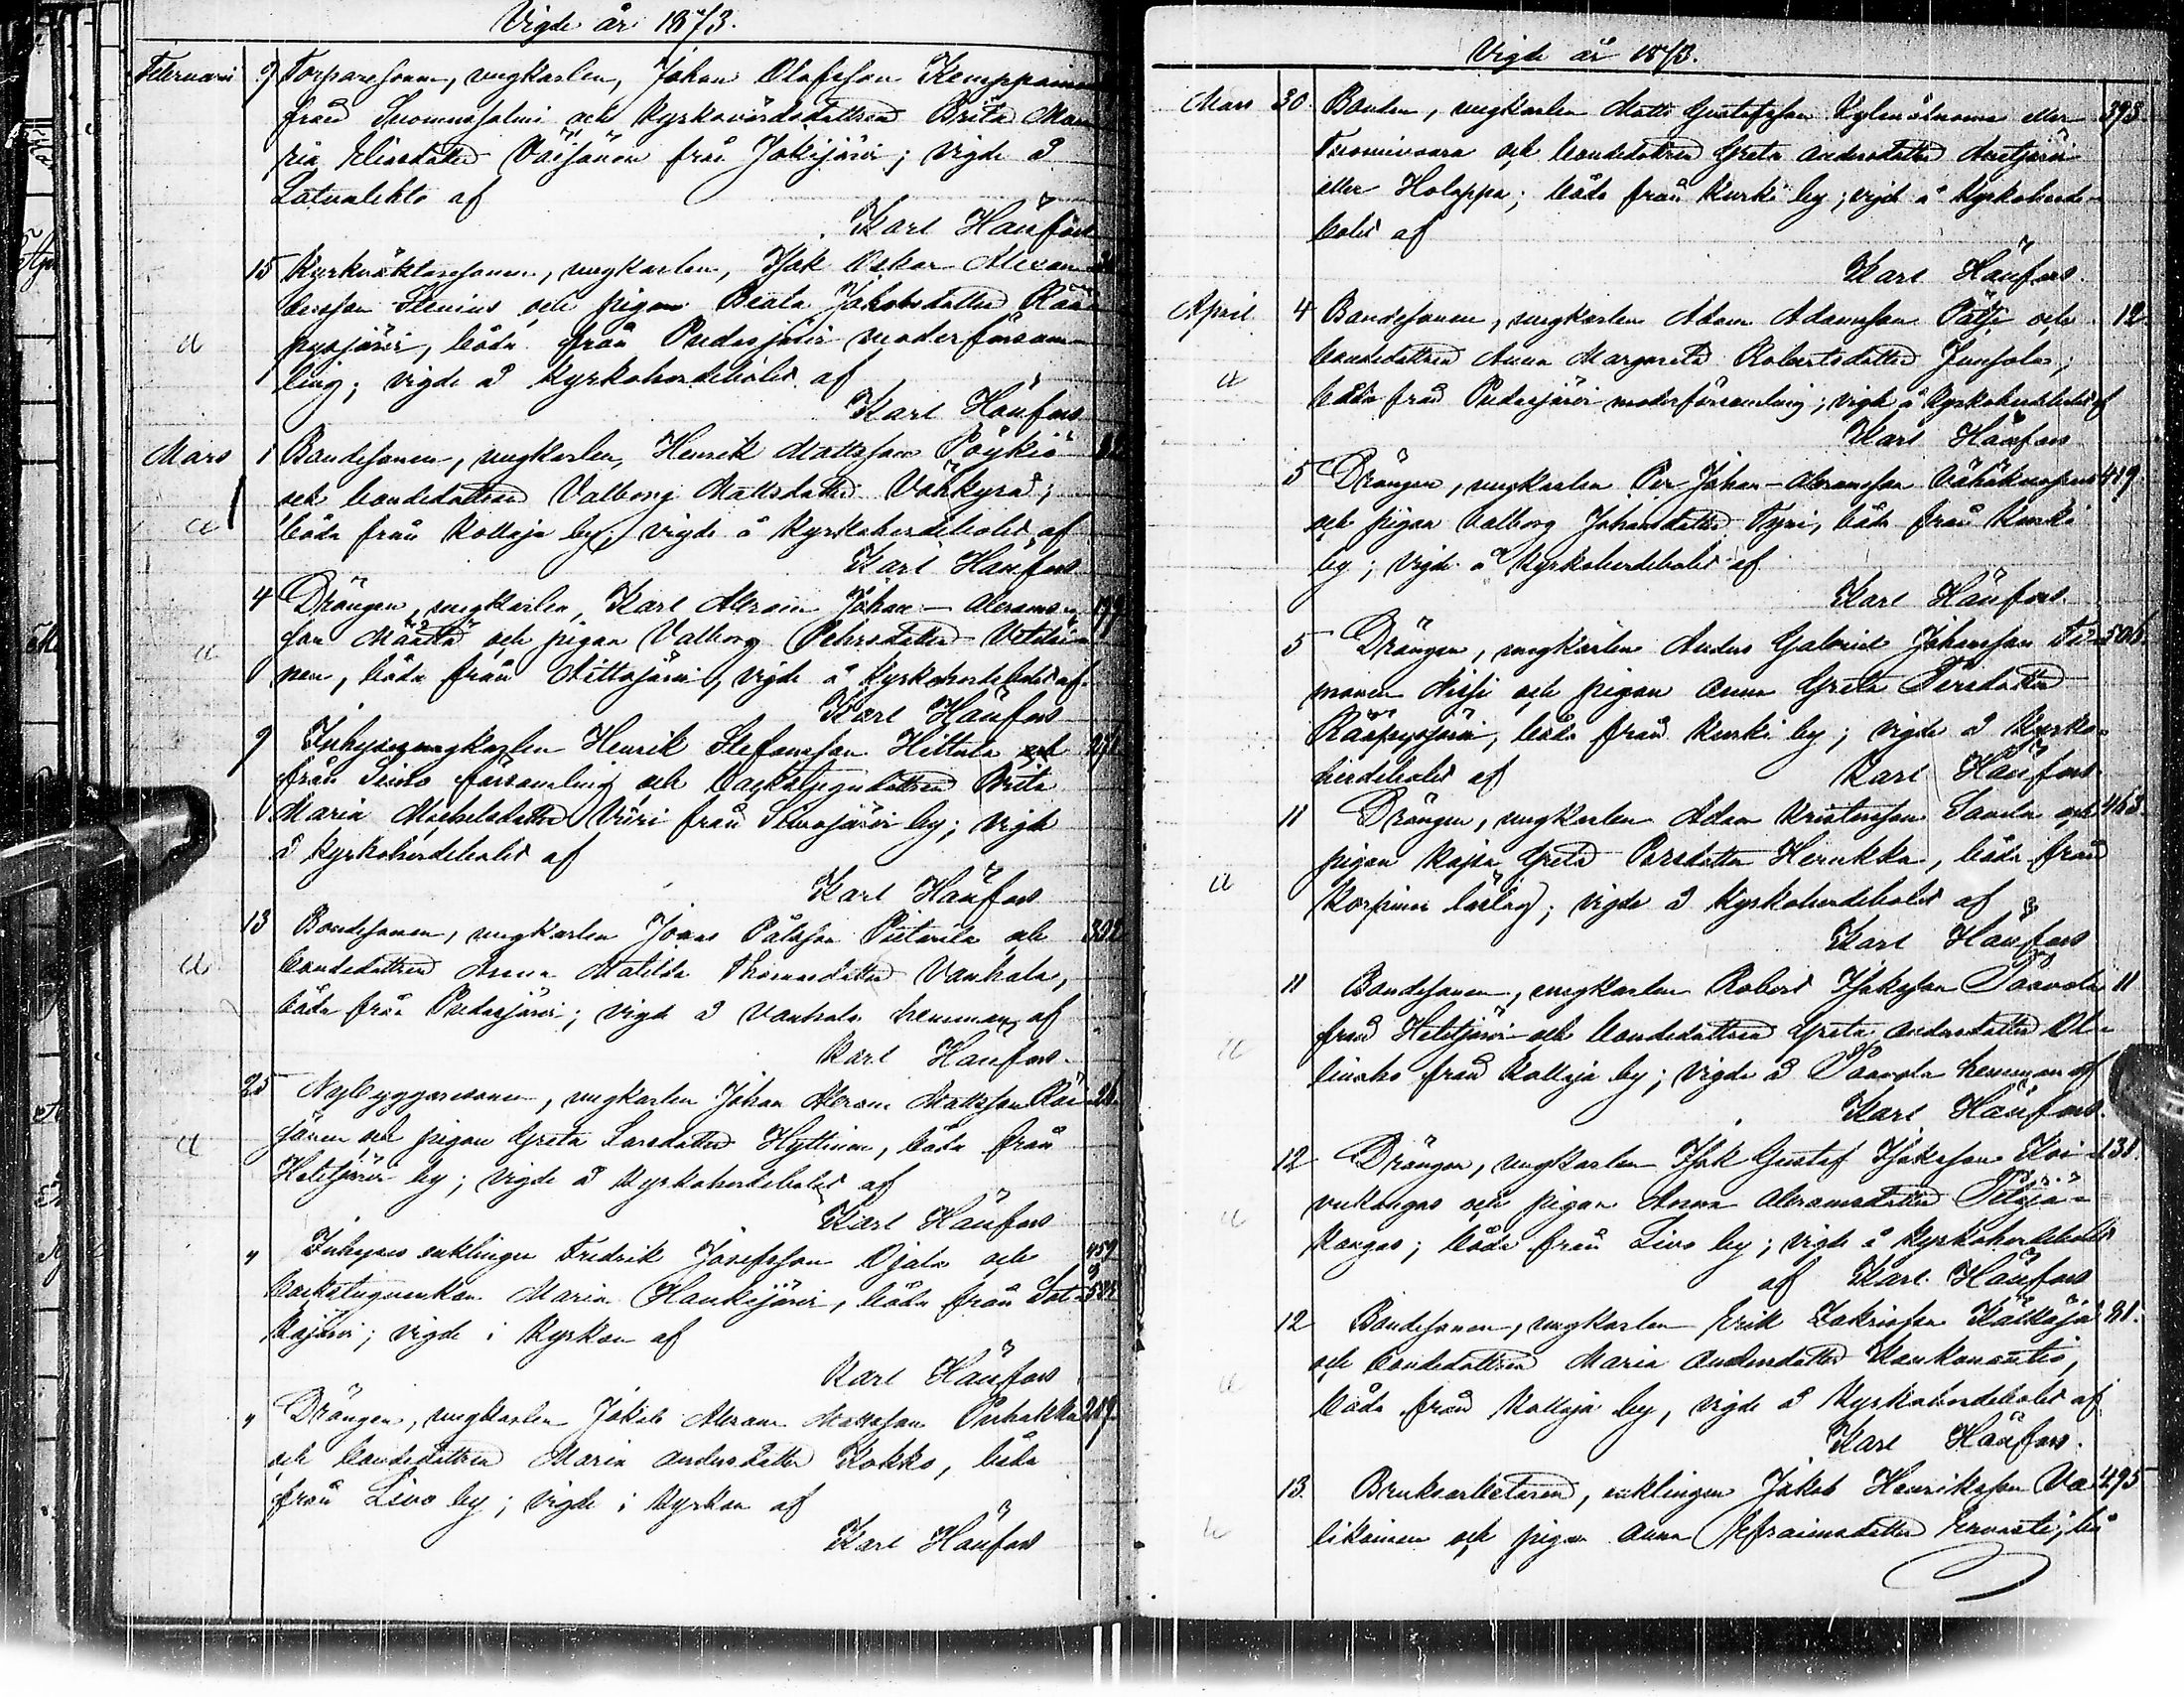 Vigde år 1873.
Februari 9 Torparesonen, ungkarlen, Johan Olofsson Kemppainen
från Suomussalmi och Kyrkovärdsdottren Brita Ma-
ria Eliasdotter Väisänen från Jokijärvi; vigde å
Latvalehto af
Karl Hänfors
15 Kyrkväktaresonen, ungkarlen, Isak Oskar Alexan-
dersson Stenius och pigan Beata Jakobsdotter Rää-
a pysjärvi, båda från Pudasjärvi moderförsam-
ling; vigde å Kyrkoherdebolet af
Karl Hänfors
Mars 1 Bondesonen, ungkarlen, Henrik Mattsson Pöykiö
och bondedottren Valborg Mattsdotter Vähkyrä;
a båda från Kollaja by; vigde å Kyrkoherdebolet af
Karl Hänfors
4 Drängen, ungkarlen, Karl Abram Johan-Abrams-
a son Määttä och pigan Valborg Pehrsdotter
nen, båda från vigde å Kyrkoherdebolet af
Karl Hänfors
9 Inhyses ungkarlen Henrik Stefansson Hiltula och
från Simo församling och backstugudottren Brita
Maria Michelsdotter Vüri från Siurajärvi by; vigde
å Kyrkoherdebolet af
Karl Hänfors
13 Bondesonen, ungkarlen Jonas Pålsson Pietarila och 302
a bondedottren Anna Matilda Thomasdotter Vanhala,
båda från Pudasjärvi; vigde å Vanhala hemman, af
Karl Hänfors.
25 Nybyggaresonen, ungkarlen Johan Abram Mattsson Räi- 26
a sänen och pigan Greta Larsdotter Hyttinen, båda från
Hetejärvi by; vigde å Kyrkoherdebolet af
Karl Hänfors
" Inhyses enklingen Fredrik Josefsson Ojala och 459
backstuguenkan Maria Haukijärvi, båda från Sot-
kajärvi; vigde i Kyrkan af
Karl Hänfors
" Drängen, ungkarlen Jakob Abram Mattsson Puhakka 219
och bondedottren Maria Andersdotter Kokko, båda
från Livo by; vigde i Kyrkan af
Karl Hänfors
Vigde år 1873.
Mars 30. Bonden, ungkarlen Matts Gustafsson eller 393
Tuomivaara och bondedottren Greta Andersdotter
eller Holappa; båda från Kurki by; vigde å Kyrkoherde-
bolet af
Karl Hänfors.
April 4 Bondesonen, ungkarlen Adam Adamsson Pätsi och 12
a bondedottren Anna Margareta Robertsdotter Jussola;
båda från Pudasjärvi moderförsamling; vigde å Kyrkoherdebolet af
Karl Hänfors
5 Drängen, ungkarlen Per Johan-Abramsson 419
och pigan Valborg Johansdotter Tyni, båda från Kurki
by; vigde å Kyrkoherdebolet af
Karl Hänfors.
5 Drängen, ungkarlen Anders Gabriel Johansson Ti- 506
monen Nissi och pigan Anna Greta Persdotter
Rääpysjärvi, båda från Kurki by; vigde å Kyrko-
herdebolet af Karl Hänfors.
11 Drängen, ungkarlen Adam Kristersson Saarela och 463
a pigan Kajsa Greta Persdotter Herukka, båda från
Korpinen bölag; vigde å Kyrkoherdebolet af
Karl Hänfors
11 Bondesonen, ungkarlen Robert Isaksson Paavola 11
a från Hetejärvi och bondedottren Greta Andersdotter Ol-
linaho från Kollaja by; vigde å Paavola hemman af
Karl Hänfors.
12 Drängen, ungkarlen Isak Gustaf Isaksson Koi- 131.
a vukangas och pigan Anna Abramsdotter Petäjä-
kangas; båda från Livo by; vigde å Kyrkoherdebolet
af Karl Hänfors
12 Bondesonen, ungkarlen Erik Zakrisson Kälkäjä 81.
och bondedottren Maria Andersdotter Kaukonautio,
a båda från Kollaja by, vigde å Kyrkoherdebolet af
Karl Hänfors.
13. Bruksarbetaren, enklingen Jakob Henriksson Va- 495
a likainen och pigan Anna Efraimsdotter Ervasti; bå-